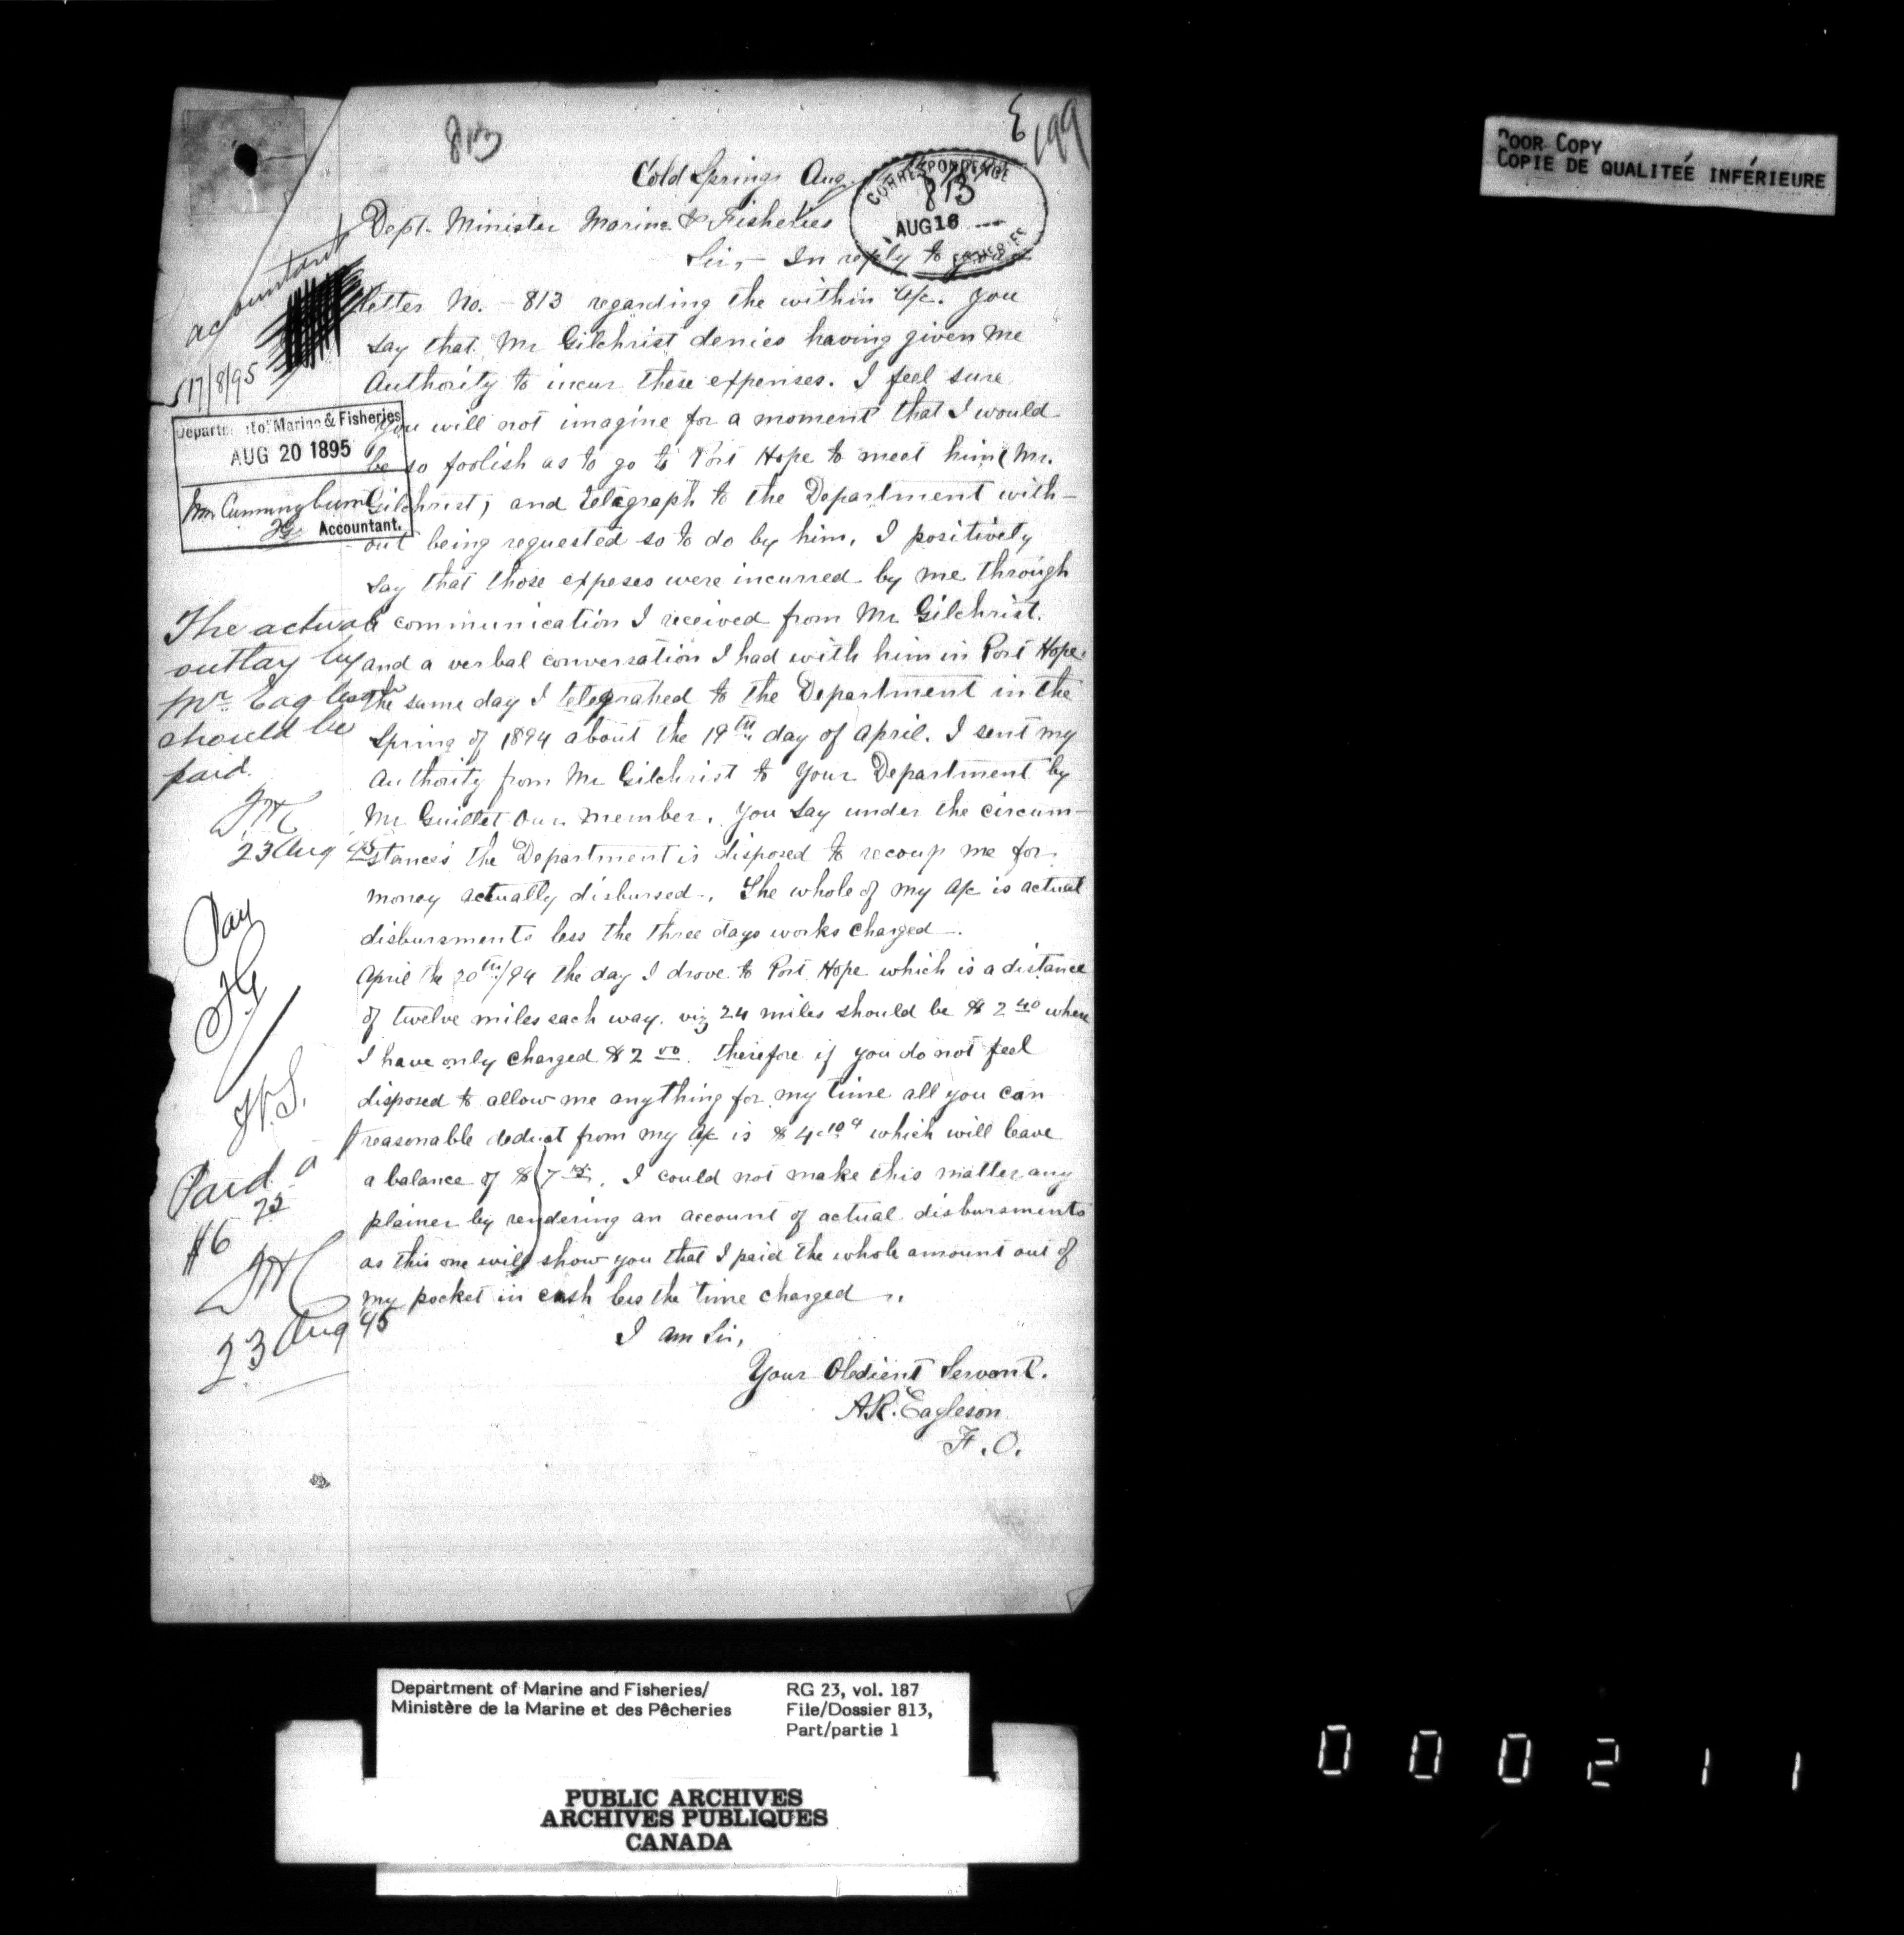 813
E 199
Cold Springs Aug.
CORRESPONDENCE
813
AUG 16
FISHERIES
Dept. Minister Marine & Fisheries
Sir,- In reply to your
letter No. - 813 regarding the within A/c. You
say that Mr Gilchrist denies having given me
Authority to incur these expenses. I feel sure
you will not imagine for a moment that I would
be so foolish as to go to Port Hope to meet him (Mr.
Gilchrist) and telegraph to the Department with-
out being requested so to do by him. I positively
say that those expeses were incurred by me through
a communication I received from Mr Gilchrist.
and a verbal conversation I had with him in Port Hope.
the same day I telegrahed to the Department in the
Spring of 1894 about the 19th day of April. I sent my
Authority from Mr Gilchrist to Your Department by
Mr Guillet our member. You say under the circum-
stances the Department is disposed to recoup me for
money actually disbursed. The whole of my A/c is actual
disbursments less the three days works charged.
April the 20th/94 the day I drove to Port Hope which is a distance
of twelve miles each way. viz 24 miles should be $ 2 40 where
I have only charged $ 2 00. therefore if you do not feel
disposed to allow me anything for my time all you can
reasonable deduct from my A/c is $ 4.10 which will leave
a balance of $ 7. I could not make this matter any
plainer by rendering an account of actual disbursments
as this one will show you that I paid the whole amount out of
my pocket in cash less the time charged.
I am Sir,
Your Obedient Servant.
A.R. Eagleson
F.O.
accountant
17/8/95
Department of Marine & Fisheries
AUG 20 1895
Mr Cunningham
Accountant.
The actual
outlay by
Mr. Eagleson
should be
paid.
23 Aug 95
Pay
Paid
$6 25
23 Aug 95
POOR COPY
COPIE DE QUALITEÉ INFÉRIEURE
Department of Marine and Fisheries/
Ministère de la Marine et des Pêcheries
RG 23, vol. 187
File/Dossier 813,
Part/partie 1
PUBLIC ARCHIVES
ARCHIVES PUBLIQUES
CANADA
000211